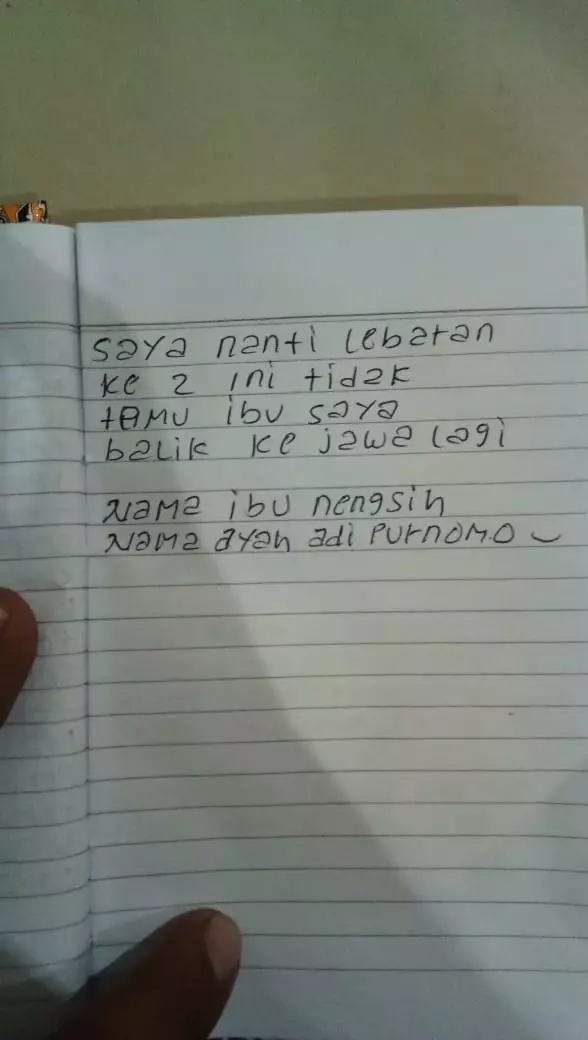 saya nanti lebaran
ke 2 ini tidak
temu ibu saya
balik ke jawa lagi
Nama ibu nengsih
Nama ayah adi Purnomo